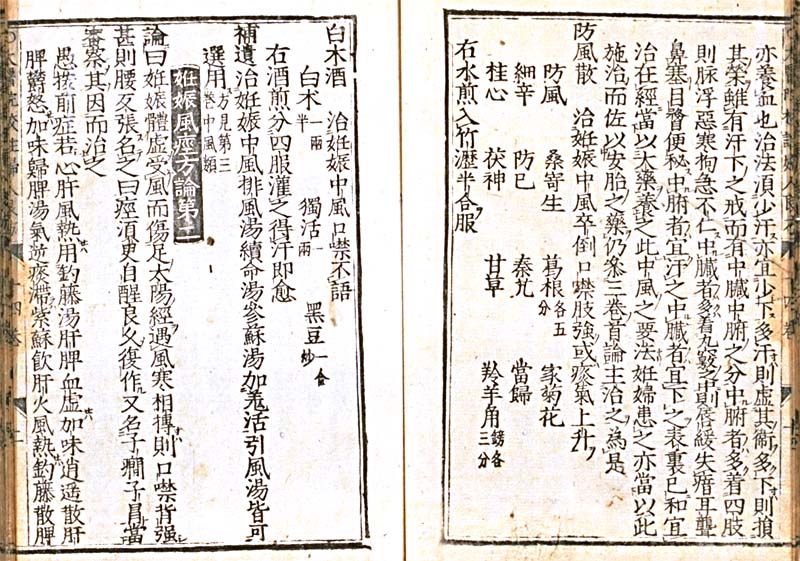 亦養血也治法須少汗亦宜少下多汗則虛其衛多下則損
其榮雖有汗下之戒而有中臓中腑之分中腑者多着四肢
則脉浮惡寒拘急不仁中臓者多着九竅中則唇緩失瘖耳聾
鼻塞目瞀便秘中腑者宜汗之中臓者宜下之表裏已和宜
治在經當以大藥養之此中風之要法姙婦患之亦當以此
施治而佐以安胎之藥仍叅三卷首論主治之為是
防風散 治姙娠中風卒倒口噤肢強或痰氣上升
防風 桑寄生 葛根各五分 家菊花
細辛 防已 秦艽 當歸
桂心 茯神 甘草 羚羊角鎊各三分
右水煎入竹瀝半合服
白术酒 治姙娠中風口噤不語
白术一兩半 獨活一兩 黑豆一合炒
右酒煎分四服灌之得汗即愈
補遺治姙娠中風排風湯續命湯參蘇湯加羗活引風湯皆可
選用方見第三卷中風類
姙娠風痙方論第二
論曰姙娠體虛受風而傷足太陽經遇風寒相搏則口噤背强
甚則腰反張名之曰痙須臾自醒良久復作又名子癇子冒當
審察其因而治之
愚按前症若心肝風熱用釣藤湯肝脾血虛加味逍遥散肝
脾鬱怒加味歸脾湯氣逆痰滯紫蘇飲肝火風熱釣藤散脾